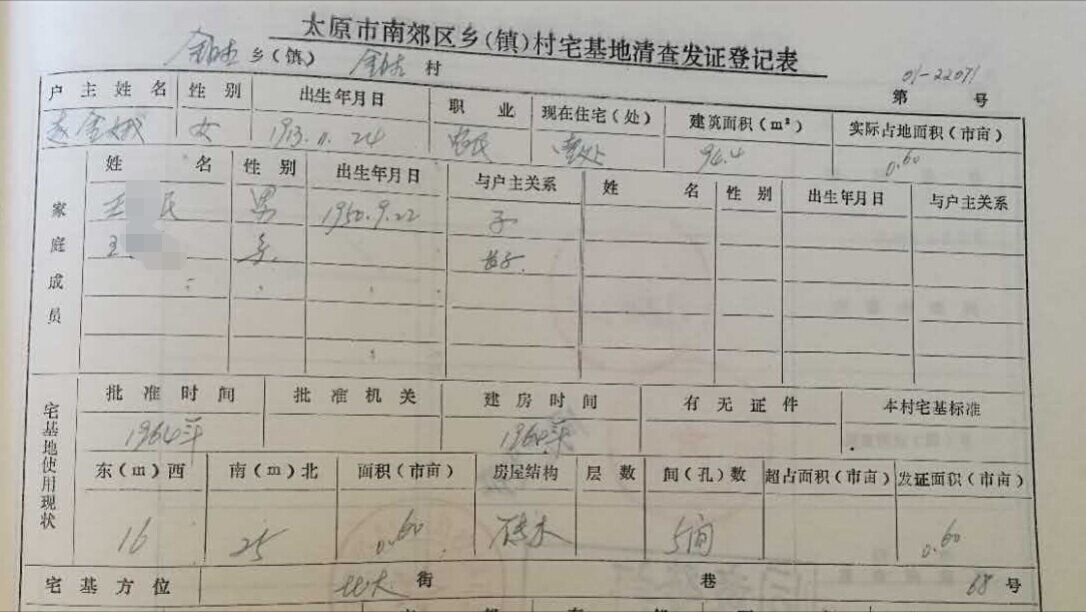 太原市南郊区乡(镇)村宅基地清查发证登记表
金胜乡(镇) 金胜村
第01-22071号
户主姓名 性别 出生年月日 职业 现在住宅(处) 建筑面积(m²) 实际占地面积(市亩)
女 1913.11.24 农民 壹处 94.4 0.60
家庭成员
姓名 性别 出生年月日 与户主关系 姓名 性别 出生年月日 与户主关系
王 民 男 1950.9.22 子
王
宅基地使用现状
批准时间 批准机关 建房时间 有无证件 本村宅基标准
1964年 1964年
东(m)西 南(m)北 面积(市亩) 房屋结构 层数 间(孔)数 超占面积(市亩) 发证面积(市亩)
16 25 0.60 砖木 5间 0.60
宅基方位 北大街 巷 68号